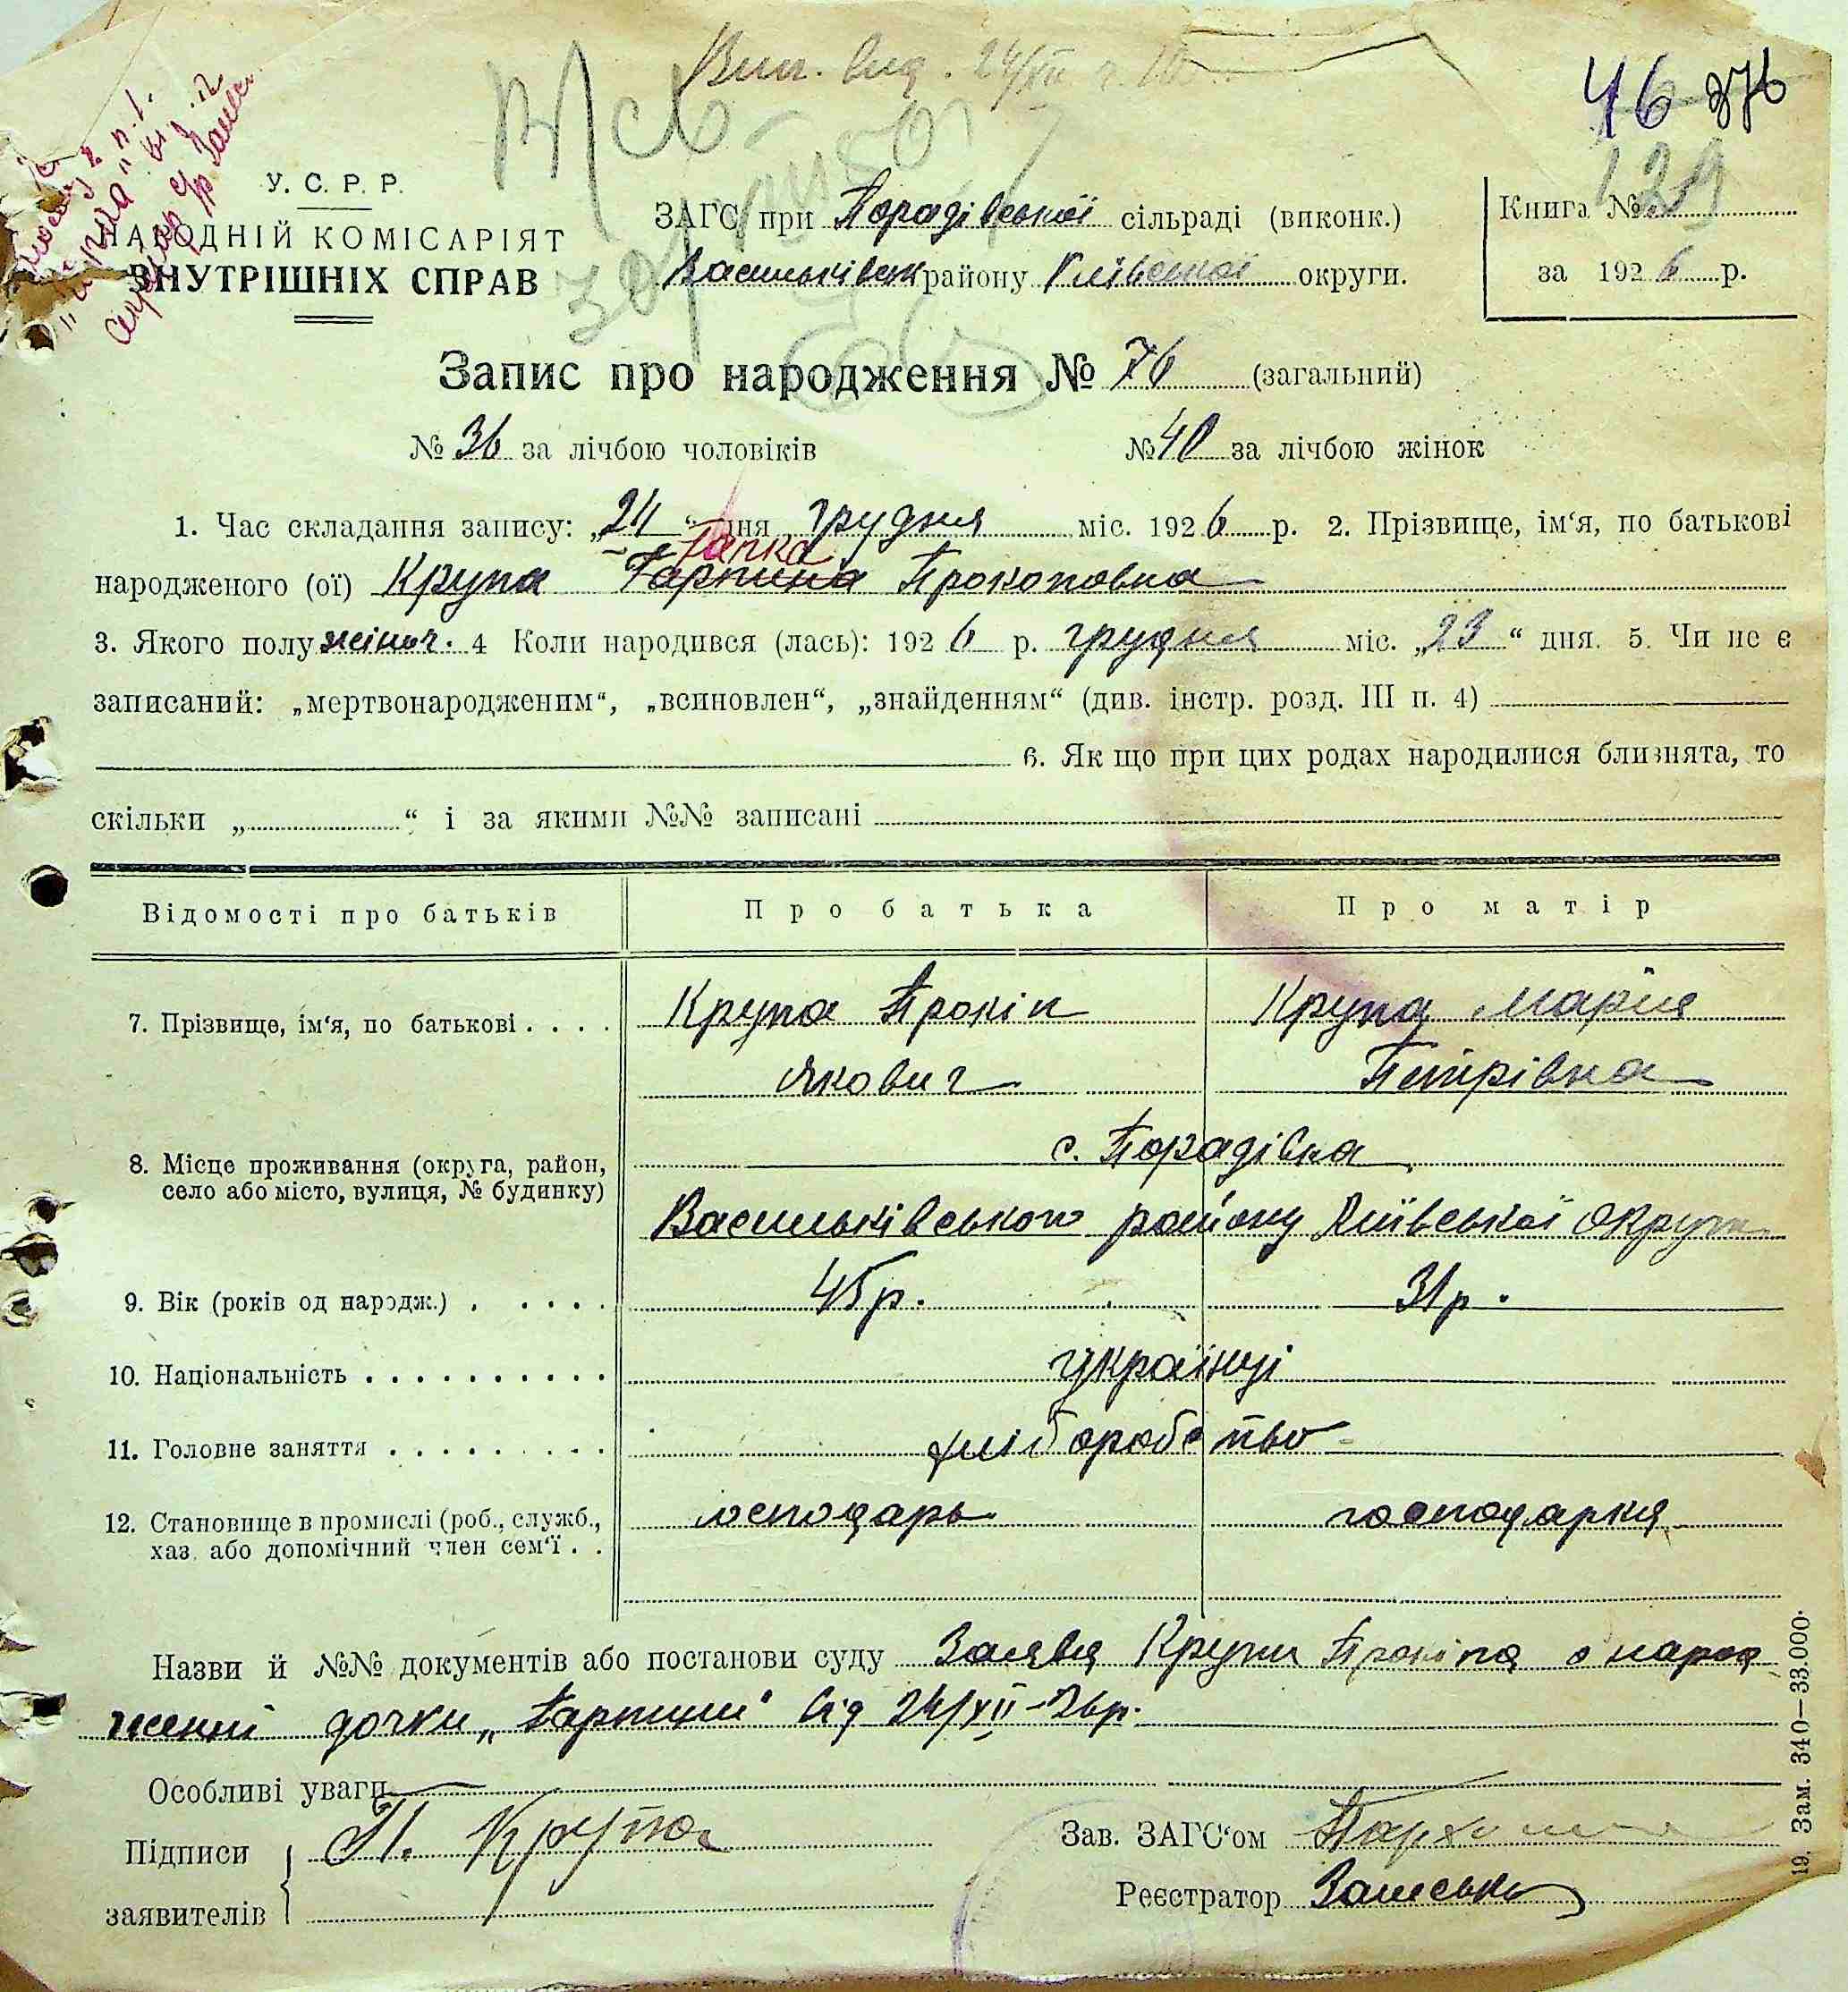 Вип. вид. 24/XII
46 376
129
У. С. Р. Р.
НАРОДНІЙ КОМІСАРІЯТ
ВНУТРІШНІХ СПРАВ
ЗАГС при Порадівської сільраді (виконк.)
Васильківськ району Київської округи.
Книга №
за 1926 р.
Запис про народження № 76 (загальний)
№ 36 за лічбою чоловіків № 40 за лічбою жінок
1. Час складання запису: „24“ дня грудня міс. 1926 р. 2. Прізвище, ім‘я, по батькові
Ганка
народженого (ої) Крупа Гарпина Прокоповна
3. Якого полу жіноч. 4 Коли народився (лась): 1926 р. грудня міс. „23“ дня. 5. Чи не є
записаний: „мертвонародженим“, „всиновлен“, „знайденням“ (див. інстр. розд. III п. 4)
6. Як що при цих родах народилися близнята, то
скільки „ “ і за якими №№ записані
Відомості про батьків Про батька Про матір
7. Прізвище, ім‘я, по батькові . . . . Крупа Прокіп Крупа Марія
Якович Петрівна
8. Місце проживання (округа, район, с. Порадівка
село або місто, вулиця, № будинку)
Васильківського району Київської округи
9. Вік (років од народж.) . . . . . 45 р. 31 р.
10. Національність . . . . . . . . . . українці
11. Головне заняття . . . . . . . . . хліборобство
12. Становище в промислі (роб., служб., господарь господарка
хаз. або допомічний член сем‘ї . .
Назви й №№ документів або постанови суду Заява Крупи Прокіпа о народ
женні дочки „Гарпини“ від 24/XII-26р.
Особливі уваги
Підписи П. Крупа Зав. ЗАГС‘ом
заявителів Реєстратор
19. Зам. 340—33.000.